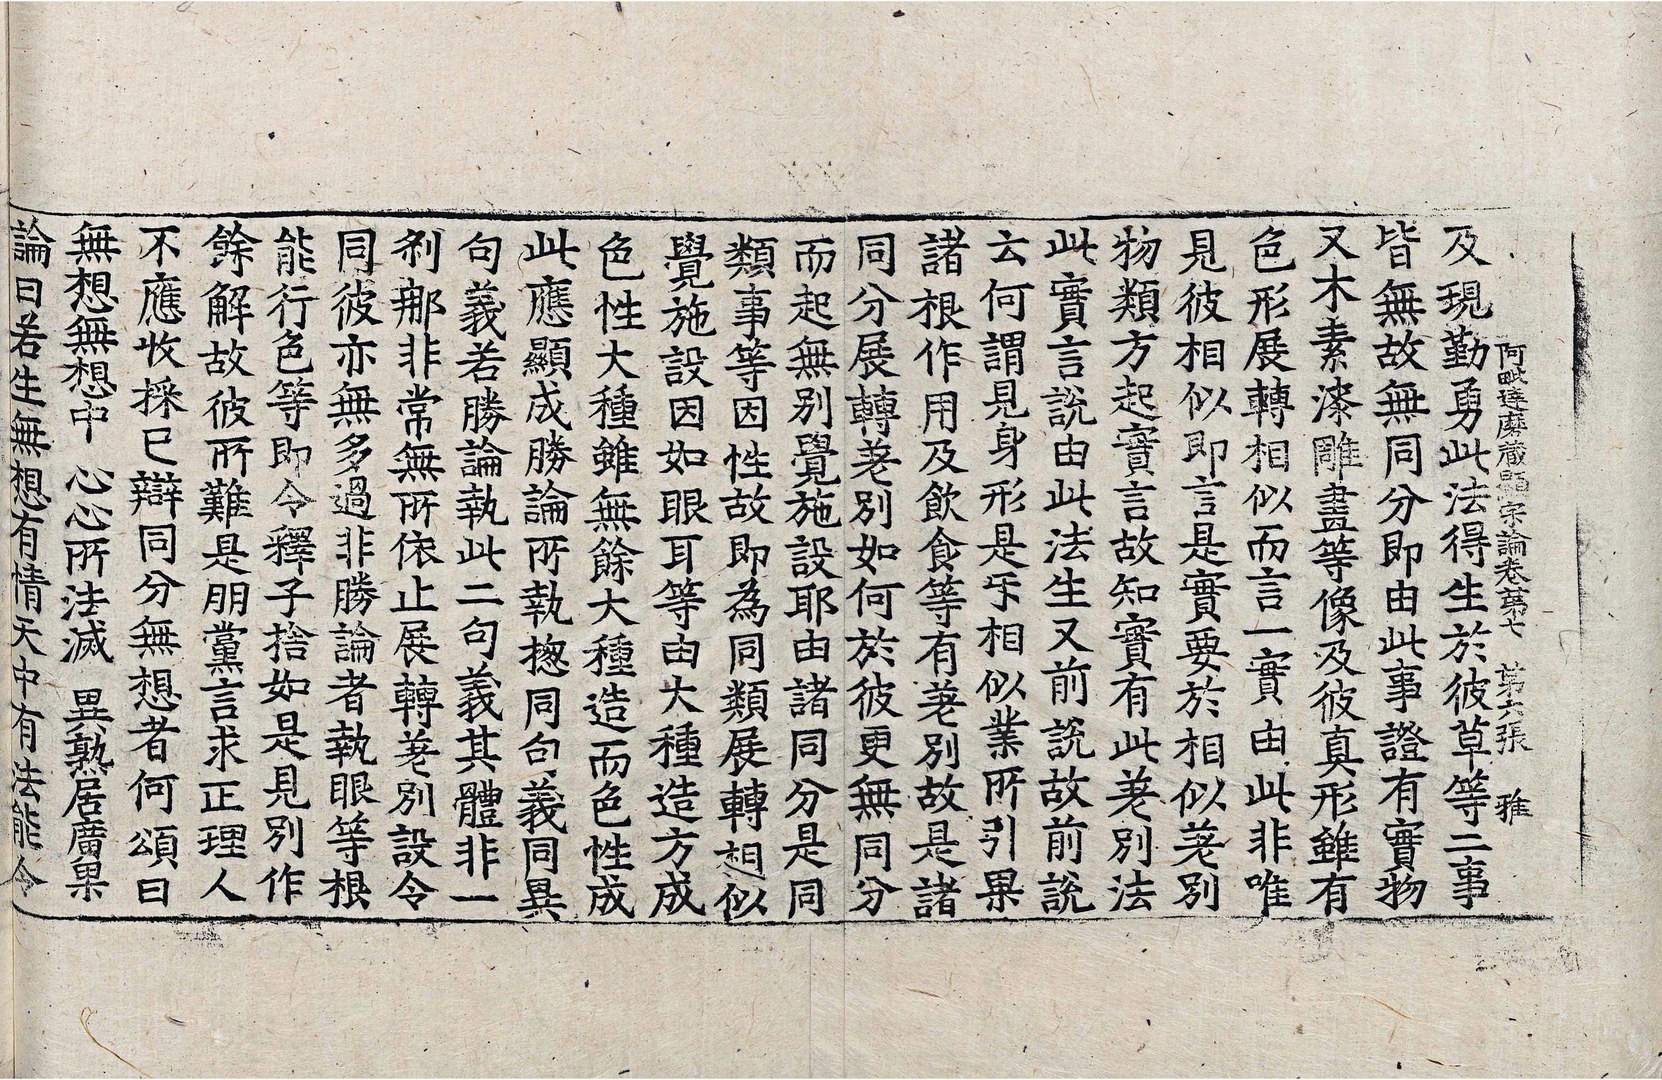 阿毗達磨藏顯宗論卷第七　第六張　雅
及現勤勇此法得生於彼草等二事
皆無故無同分即由此事證有實物
又木素漆雕畫等像及彼真形雖有
色形展轉相似而言一實由此非唯
見彼相似即言是實要於相似差別
物類方起實言故知實有此差別法
此實言說由此法生又前說故前說
云何謂見身形是乎相似業所引果
諸根作用及飲食等有差別故是諸
同分展轉差別如何於彼更無同分
而起無別覺施設耶由諸同分是同
類事等因性故即為同類展轉相似
覺施設因如眼耳等由大種造方成
色性大種雖無餘大種造而色性成
此應顯成勝論所執揔同句義同異
句義若勝論執此二句義其體非一
剎那非常無所依止展轉差別設令
同彼亦無多過非勝論者執眼等根
能行色等即令釋子捨如是見別作
餘解故彼所難是朋黨言求正理人
不應收採已辯同分無想者何頌曰
無想無想中　心心所法滅　異熟居廣果
論曰若生無想有情天中有法能令